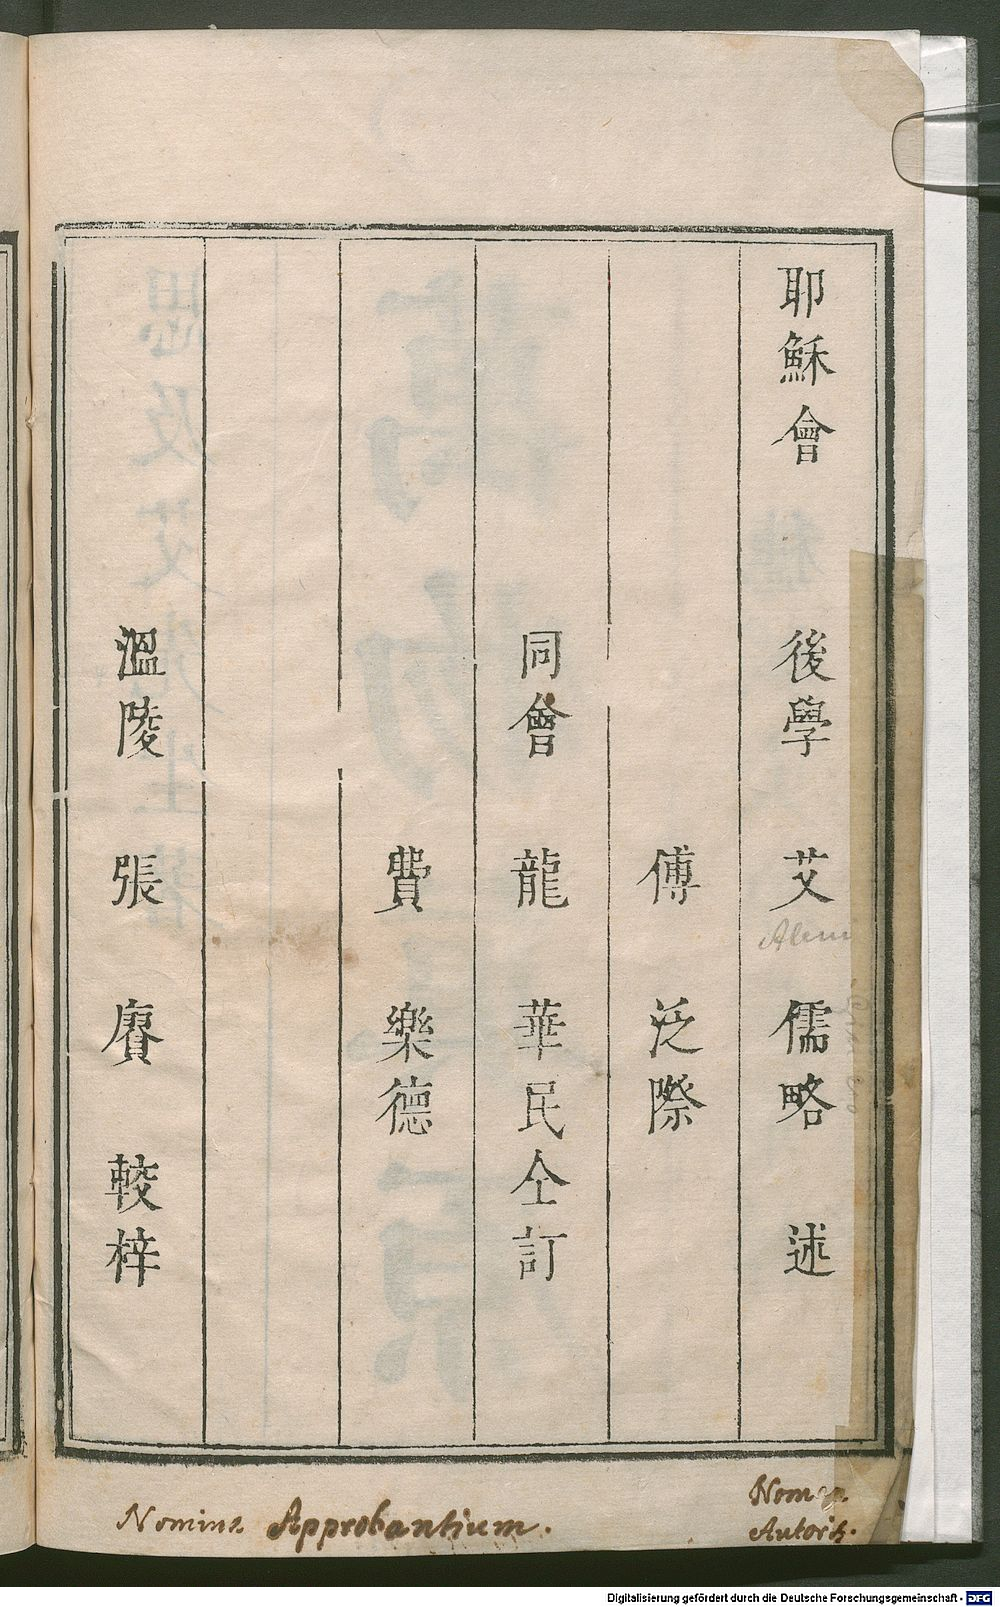 耶穌會 後學 艾 儒略 述
傅 泛際
同會 龍 華民 仝訂
費 樂德
溫陵 張 賡 較梓
Alen
Nomina Approbantium.
Nomen
Autoris.
Digitalisierung gefördert durch die Deutsche Forschungsgemeinschaft - DFG